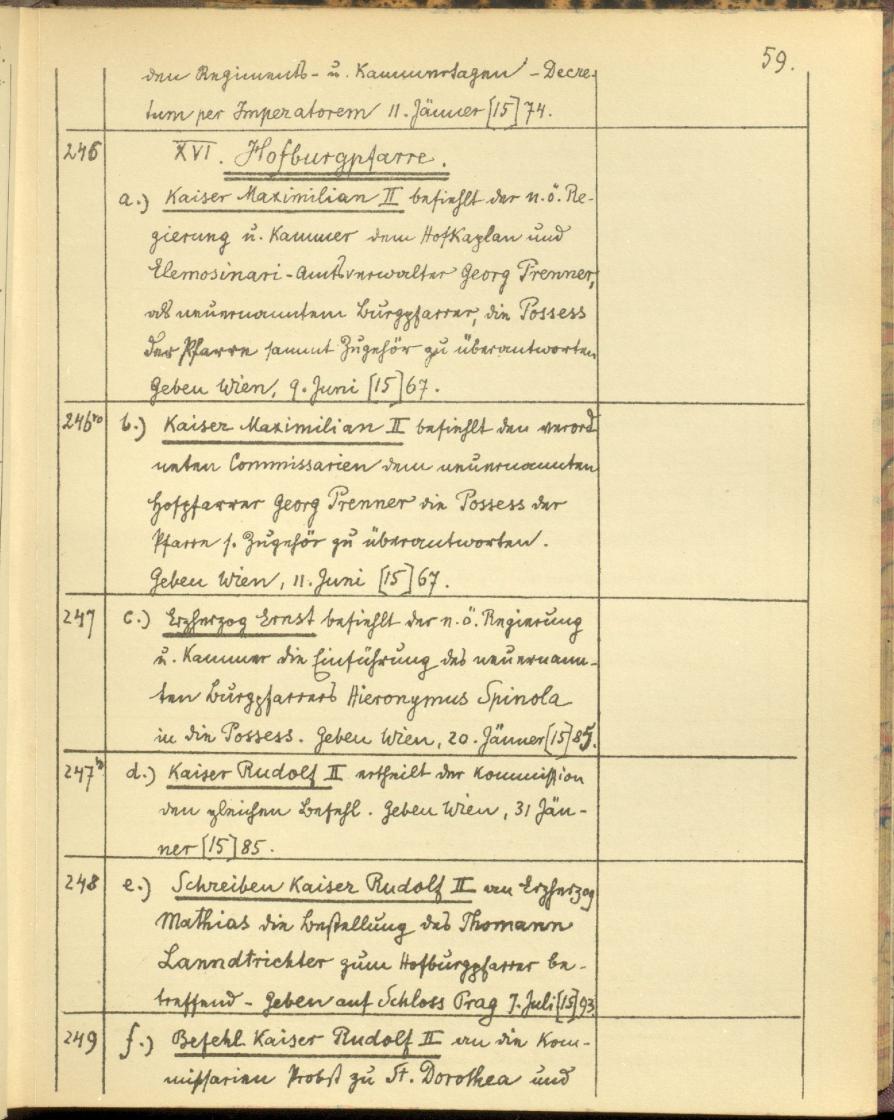 59.
den Regiments- u. Kammertagen - Decre-
tum per Imperatorem 11. Jänner [15]74.
246 XVI. Hofburgpfarre.
a.) Kaiser Maximilian II befiehlt der n.ö. Re-
gierung u. Kammer dem Hofkaplan und
Elemosinari-Amtsverwalter Georg Prenner,
als neuernanntem Burgpfarrer, die Possess
der Pfarre sammt Zugehör zu überantworten
Geben Wien, 9. Juni [15]67.
246vo b.) Kaiser Maximilian II befiehlt den verord
neten Commissarien dem neuernannten
Hofpfarrer Georg Prenner die Possess der
Pfarre s. Zugehör zu überantworten.
Geben Wien, 11. Juni [15]67.
247 c.) Erzherzog Ernst befiehlt der n.ö. Regierung
u. Kammer die Einführung des neuernann-
ten Burgpfarrers Hieronymus Spinola
in die Possess. Geben Wien, 20. Jänner [15]85.
247v d.) Kaiser Rudolf II ertheilt der Kommission
den gleichen Befehl. Geben Wien, 31 Jän-
ner [15]85.
248 e.) Schreiben Kaiser Rudolf II an Erzherzog
Mathias die Bestellung des Thomann
Lanndtrichter zum Hofburgpfarrer be-
treffend - Geben auf Schloss Prag 7. Juli [15]93
249 f.) Befehl Kaiser Rudolf II an die Kom-
missarien Probst zu St. Dorothea und